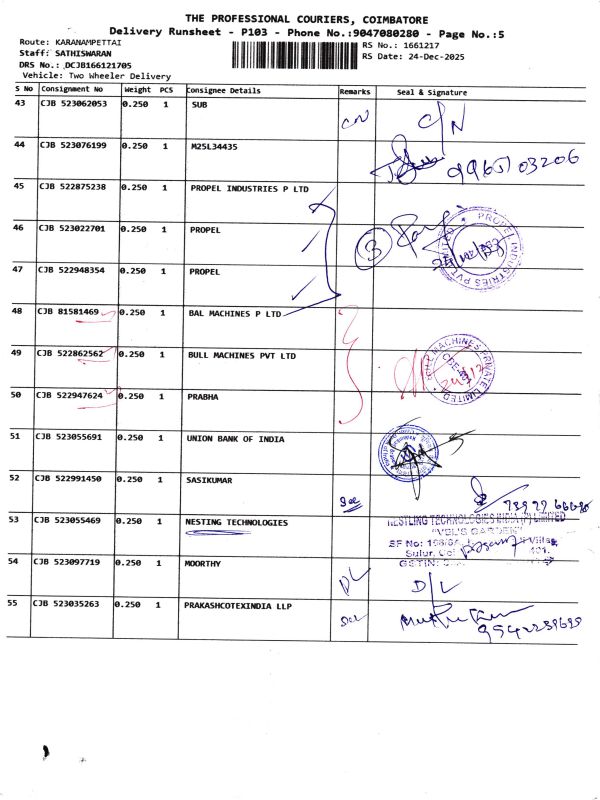 THE PROFESSIONAL COURIERS, COIMBATORE
Delivery Runsheet - P103 - Phone No.:9047080280 - Page No.:5
Route: KARANAMPETTAI
RS No.: 1661217
Staff: SATHISWARAN
RS Date: 24-Dec-2025
DRS No.: DCJB166121705
Vehicle: Two Wheeler Delivery
S No Consignment No Weight PCS Consignee Details Remarks Seal & Signature
43 CJB 523062053 0.250 1 SUB C/N C/N
44 CJB 523076199 0.250 1 M25L34435
45 CJB 522875238 0.250 1 PROPEL INDUSTRIES P LTD
46 CJB 523022701 0.250 1 PROPEL 3 PROPEL INDUSTRIES PVT LIMITED
47 CJB 522948354 0.250 1 PROPEL
48 CJB 81581469 0.250 1 BAL MACHINES P LTD
49 CJB 522862562 0.250 1 BULL MACHINES PVT LTD MACHINES PRIVATE LIMITED
50 CJB 522947624 0.250 1 PRABHA
51 CJB 523055691 0.250 1 UNION BANK OF INDIA
52 CJB 522991450 0.250 1 SASIKUMAR
53 CJB 523055469 0.250 1 NESTING TECHNOLOGIES NESTLING TECHNOLOGIES INDIA (P) LIMITED
SF No:
Sulur,
GSTIN:
54 CJB 523097719 0.250 1 MOORTHY D/L D/L
55 CJB 523035263 0.250 1 PRAKASHCOTEXINDIA LLP